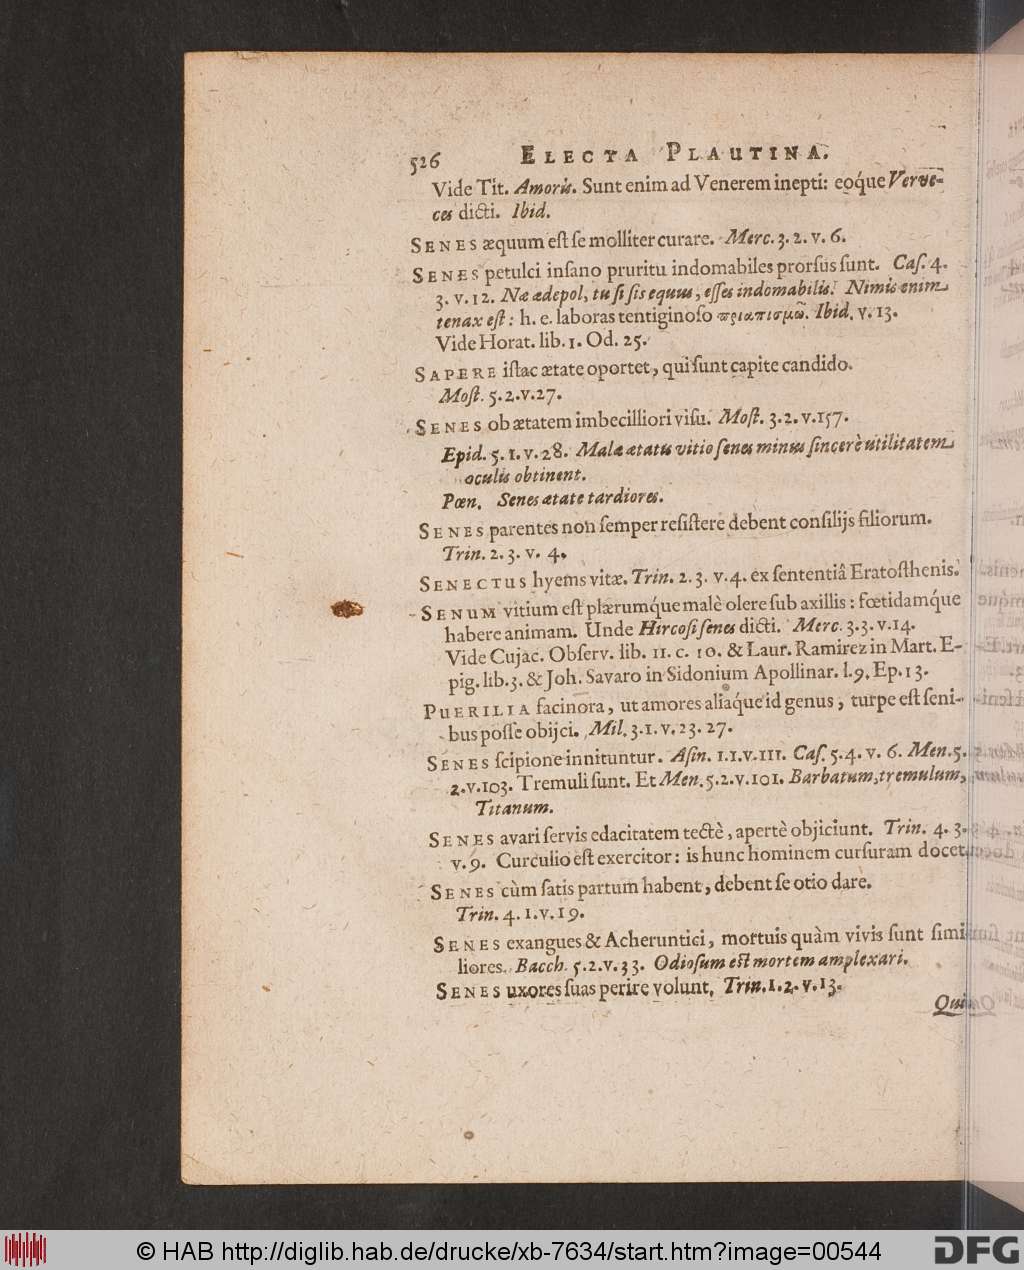 526 ELECTA PLAUTINA.
Vide Tit. Amoris. Sunt enim ad Venerem inepti: eoq́ue Verve-
ces dicti. Ibid.
SENES æquum eſt ſe molliter curare. Merc. 3. 2. v. 6.
SENES petulci inſano pruritu indomabiles prorſus ſunt. Caſ. 4.
3. v. 12. Næ ædepol, tu ſi ſis equus, eſſes indomabilis. Nimis enim
tenax eſt: h. e. laboras tentiginoſo πριαπισμῶ. Ibid. v. 13.
Vide Horat. lib. 1. Od. 25.
SAPERE iſtac ætate oportet, qui ſunt capite candido.
Moſt. 5. 2. v. 27.
SENES ob ætatem imbecilliori viſu. Moſt. 3. 2. v. 157.
Epid. 5. 1. v. 28. Malæ ætatis vitio ſenes minus ſincerè utilitatem
oculis obtinent.
Pœn. Senes ætate tardiores.
SENES parentes non ſemper reſiſtere debent conſilijs filiorum.
Trin. 2. 3. v. 4.
SENECTUS hyems vitæ. Trin. 2. 3. v. 4. ex ſententiâ Eratoſthenis.
SENUM vitium eſt plærumq́ue malè olere ſub axillis: fœtidamq́ue
habere animam. Unde Hircoſi ſenes dicti. Merc. 3. 3. v. 14.
Vide Cujac. Obſerv. lib. 11. c. 10. & Laur. Ramirez in Mart. E-
pig. lib. 3. & Joh. Savaro in Sidonium Apollinar. l. 9. Ep. 13.
PUERILIA facinora, ut amores aliaq́ue id genus, turpe eſt ſeni-
bus poſſe obijci. Mil. 3. 1. v. 23. 27.
SENES ſcipione innituntur. Aſin. 1. 1. v. 111. Caſ. 5. 4. v. 6. Men. 5.
2. v. 103. Tremuli ſunt. Et Men. 5. 2. v. 101. Barbatum, tremulum,
Titanum.
SENES avari ſervis edacitatem tectè, apertè objiciunt. Trin. 4. 3.
v. 9. Curculio eſt exercitor: is hunc hominem curſuram docet.
SENES cùm ſatis partum habent, debent ſe otio dare.
Trin. 4. 1. v. 19.
SENES exangues & Acheruntici, mortuis quàm vivis ſunt ſimi
liores. Bacch. 5. 2. v. 33. Odioſum eſt mortem amplexari.
SENES uxores ſuas perire volunt. Trin. 1. 2. v. 13.
Qui
© HAB http://diglib.hab.de/drucke/xb-7634/start.htm?image=00544
DFG